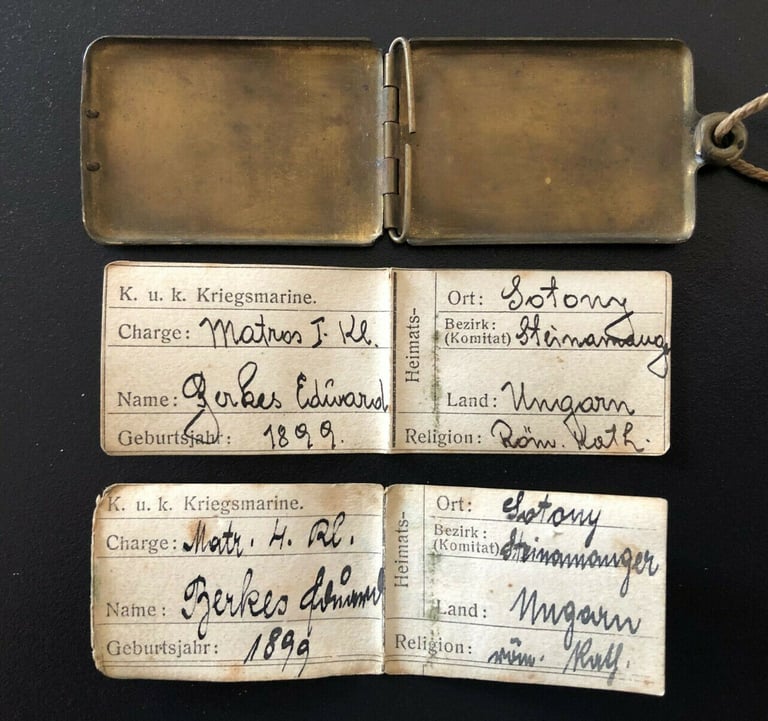 K. u. k. Kriegsmarine.
Charge: Matros I. Kl.
Name: Berkes Eduard
Geburtsjahr: 1899.
Heimats-
Ort: Sotony
Bezirk: (Komitat) Steinamang
Land: Ungarn
Religion: Röm. Kath.
K. u. k. Kriegsmarine.
Charge: Matr. 4. Kl.
Name: Berkes Eduard
Geburtsjahr: 1899
Heimats-
Ort: Sotony
Bezirk: (Komitat) Steinamanger
Land: Ungarn
Religion: röm. Kath.